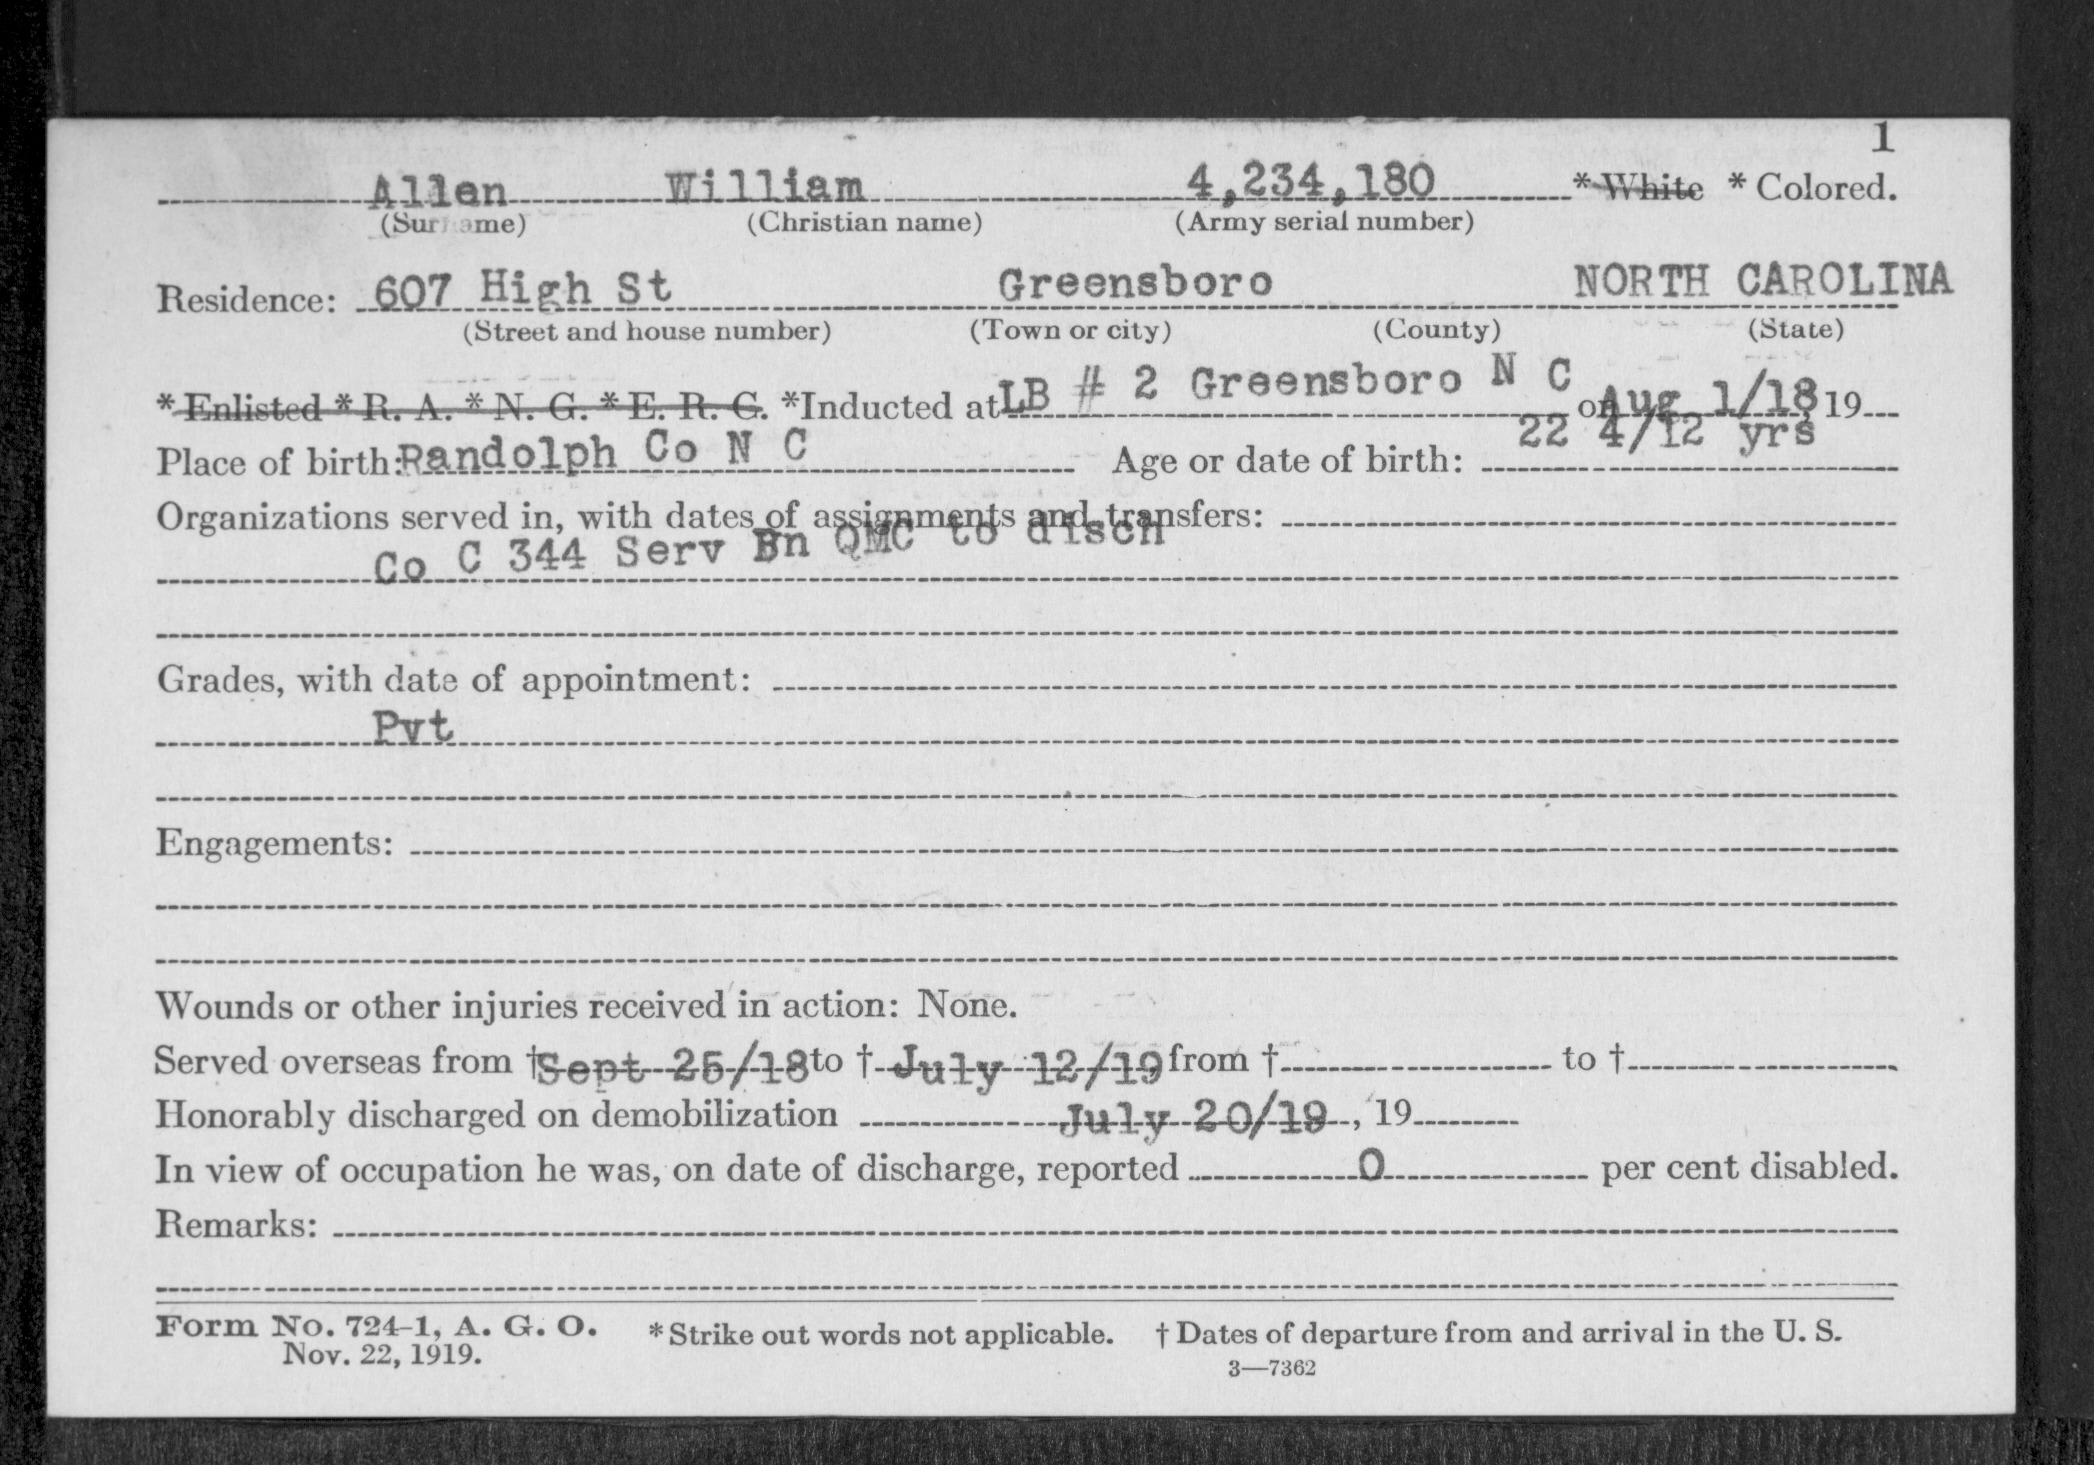 1
Allen William 4,234,180 *White * Colored.
(Surname) (Christian name) (Army serial number)
Residence: 607 High St Greensboro NORTH CAROLINA
(Street and house number) (Town or city) (County) (State)
*Enlisted *R. A. *N. G. *E. R. C. *Inducted at LB # 2 Greensboro N C on Aug 1/18, 19
Place of birth: Randolph Co N C Age or date of birth: 22 4/12 yrs
Organizations served in, with dates of assignments and transfers:
Co C 344 Serv Bn QMC to disch
Grades, with date of appointment:
Pvt
Engagements:
Wounds or other injuries received in action: None.
Served overseas from † Sept 25/18 to † July 12/19, from † to †
Honorably discharged on demobilization July 20/19, 19
In view of occupation he was, on date of discharge, reported 0 per cent disabled.
Remarks:
Form No. 724-1, A. G. O. *Strike out words not applicable. † Dates of departure from and arrival in the U. S.
Nov. 22, 1919.
3—7362